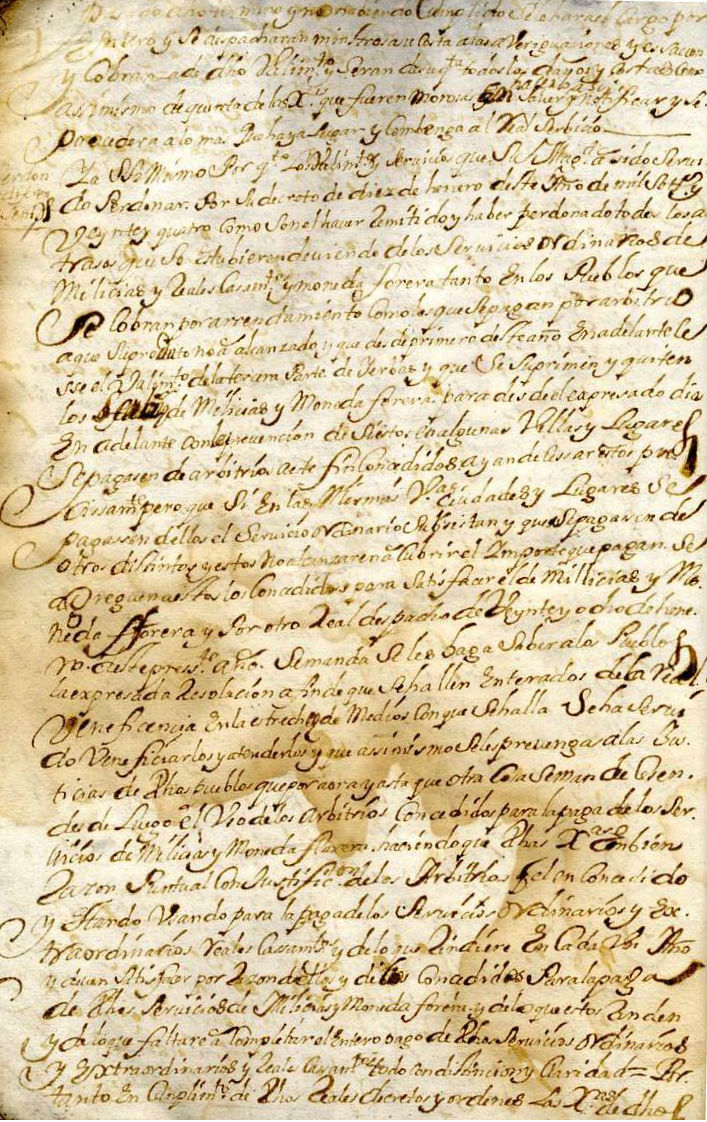 año
Entero y Se despacharan ministros a su Costa a las averiguaciones y
y Cobranza de dho Valim.to y Seran de su q.ta todos los daños y costas
assimismo de quenta de las X.as que fueren morosas en hazerlo Saver y notificar y Se
Prozedera a lo mas que haya lugar y Combenga al Real Serbicio
Ya assi Mismo Por q.to Los Valim.tos y Servicios que Su Mag.d a sido Servi
do Perdonar. Por Su decreto de diez de henero deste Año de mil Set.os y
Veynte y quatro Como Son el haver Remitido y haber perdonado todos los a
trasos que Se Estubieren deviendo de los Servicios ordinarios de
Milicias y Reales Casam.tos y moneda forera tanto En los Pueblos que
Se Cobran por arrendamiento Como los que Se pagan por arbitrio
a que Su produto no a alcanzado y que desde primero deste año En adelante le
sse el Valim.to de la tercera Parte de Yerbas y que Se Suprimen y quiten
los de Milicias y Moneda forera para desde el expresado dia
En adelante con la prevencion de Si estos en algunas Villas y Lugares
Se pagasen de arbitrios a este fin Concedidos ayan de Cessar estos pre
cissam.te pero que Si En las Mismas V.as Ciudades y Lugares Se
pagasen dellos el Servicio ordinario Subsistan y que Si Se pagasen de
otros distintos y estos No alcanzaren a Cubrir el Importe que pagan. Se
agreguen a estos los Concedidos para Satisfazer el de Millicias y Mo
neda fforera y Por otro Real despacho de Veynte y ocho de hene
ro deste press.te año. Se manda Se les haga Saber a los Pueblos
la expresada Resolucion a fin de que Se hallen Enterados de la Real
Veneficencia En la estrechez de Medios Con que Se halla Se ha Servi
do Veneficiarlos y atenderlos y que assimismo Se les prevenga a las Jus
ticias de dhos pueblos que por aora y asta que otra Cosa Se mande Cesen
desde Luego el Uso de los Arbitrios Concedidos para la paga de los Ser
vicios de Milicias y Moneda florera. haciendo que dhas X.as embien
Razon Puntual Con Justific.on de los Arbitrios que en Concedido
y Estando Usando para la paga de los Servicios ordinarios y Ex
traordinarios reales Cassam.tos y de lo que Rindiere En Cada Un Año
y devan Satisfazer por Razon dellos y de los Concedidos Para la paga
de dhos Servicios de Milicias y Moneda forera. y de lo que estos Rinden
y de lo que faltare a Completar el Entero pago de dhos Servicios ordinarios
y Extraordinarios y Reales Cassam.tos todo con distincion y Claridad = Por
tanto En Cumplim.to de dhos Reales decretos y ordenes Las X.as de dhos